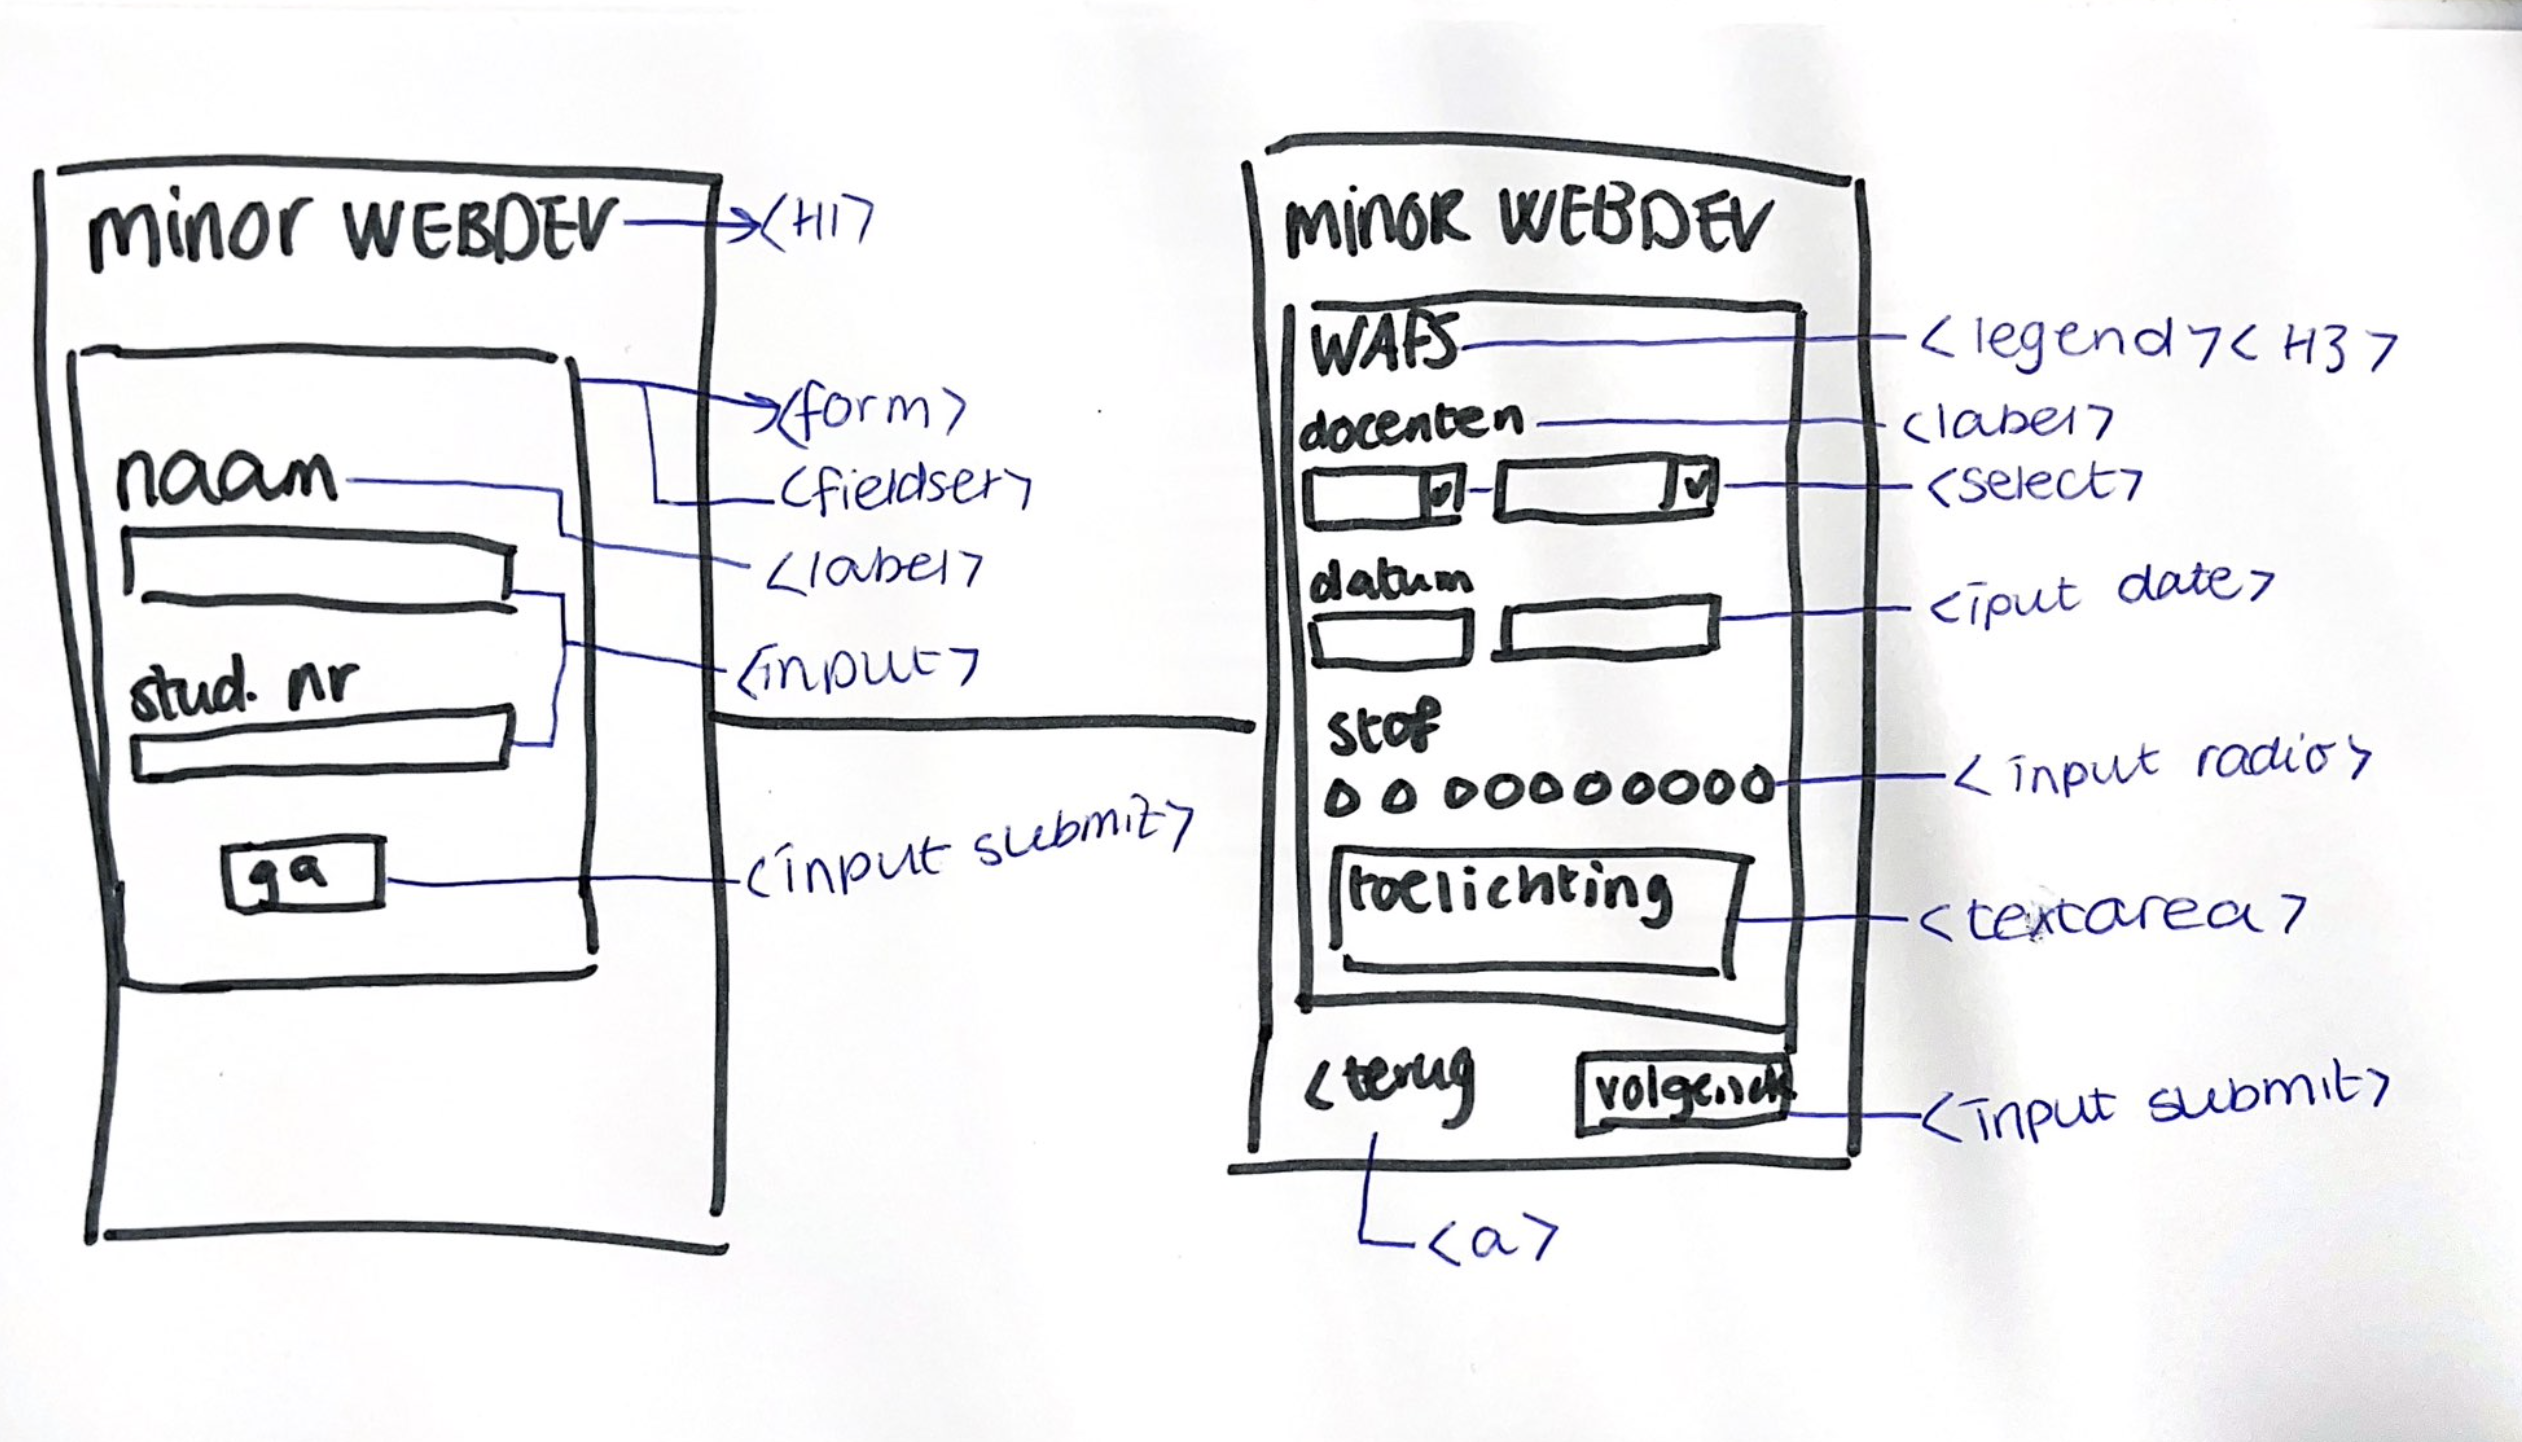 minor WEBDEV
<H1>
<form>
<fieldser>
naam
<label>
<input>
stud. nr
ga
<input submit>
minor WEBDEV
WAFS
<legend><H3>
docenten
<label>
<select>
datum
<iput date>
stof
<input radio>
toelichting
<textarea>
<terug
<input submit>
<a>